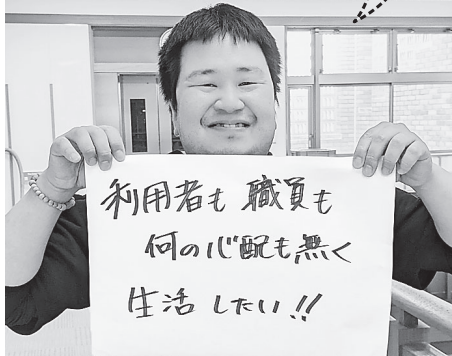 利用者も 職員も
何の心配も無く
生活したい!!